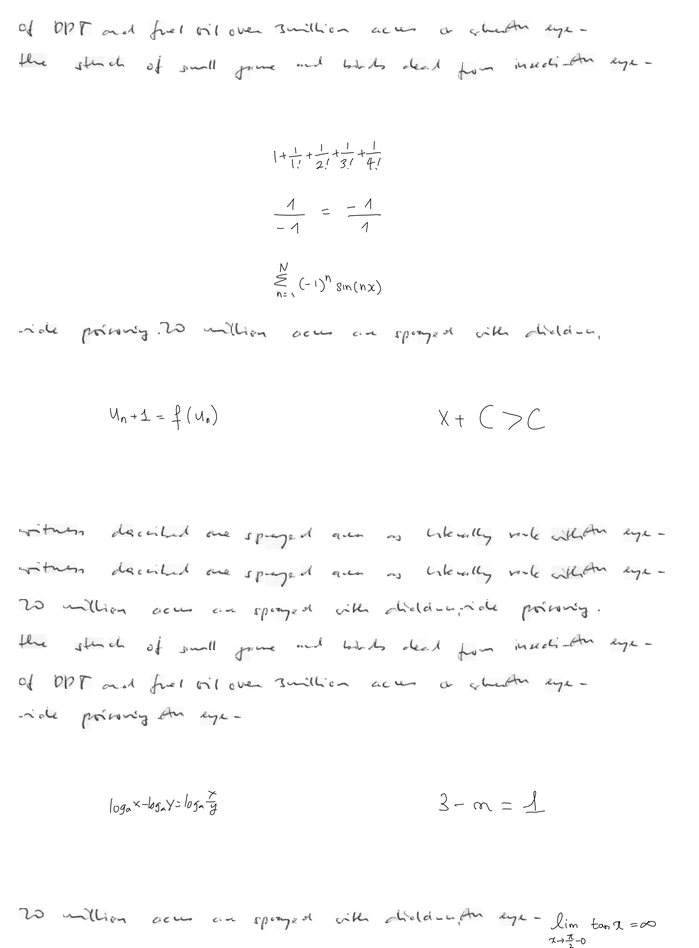 of DDT and fuel oil over 3 million acres a An eye-
the stench of small game and birds dead from insecti-An eye-
1+\frac{1}{1!}+\frac{1}{2!}+\frac{1}{3!}+\frac{1}{4!}
\frac{1}{-1} = \frac{-1}{1}
\sum_{n=1}^{N} (-1)^n sin(nx)
-cide poisoning. 20 million acres are sprayed with dieldrin,
u_n+1 = f(u_n) x + C > C
witness described one sprayed area as literally reek with An eye-
witness described one sprayed area as literally reek with An eye-
20 million acres are sprayed with dieldrin,-cide poisoning.
the stench of small game and birds dead from insecti-An eye-
of DDT and fuel oil over 3 million acres a An eye-
-cide poisoning An eye-
log_a x - log_a y = log_a \frac{x}{y} 3 - n = 1
20 million acres are sprayed with dieldrin, An eye- \lim_{x \to \frac{\pi}{2}-0} tan x = ∞